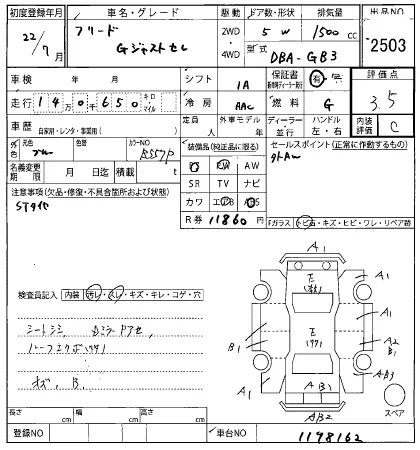 初度登録年月 車名・グレード 駆動 ドア数・形状 排気量 出品NO
22/7月 フリード 2WD 4WD 5 W 1500 cc 2503
Gジャストセレ 型式 DBA-GB3
車検 年 月 シフト 1A 保証書 新車時ディーラー発行 有・無 評価点
走行 14万0千650 キロ・マイル 冷房 AAC 燃料 G 3.5
車歴 自家用・レンタ・事業用( ) 定員 人 外車モデル 年 ディーラー 並行 ハンドル 左・右 内装評価 C
外色 元色 ブルー 色替 カラーNO B557P 装備品(純正品に限る) セールスポイント(正常に作動するもの)
名義変更期限 月 日迄 積載 t PS PW AW
注意事項(欠品・修復・不具合箇所および状態) SR TV ナビ
カワ エアB ABS
R券 11860円 Fガラス トビ石・キズ・ヒビ・ワレ・リペア跡
A1
A1
A1
検査員記入 内装 汚レ・スレ・キズ・キレ・コゲ・穴
B1 A2
B1
AB3
A1 A B1
AB2
スペア
キズ、B.
長さ cm 幅 cm 高さ cm
登録NO 車台NO 1198162